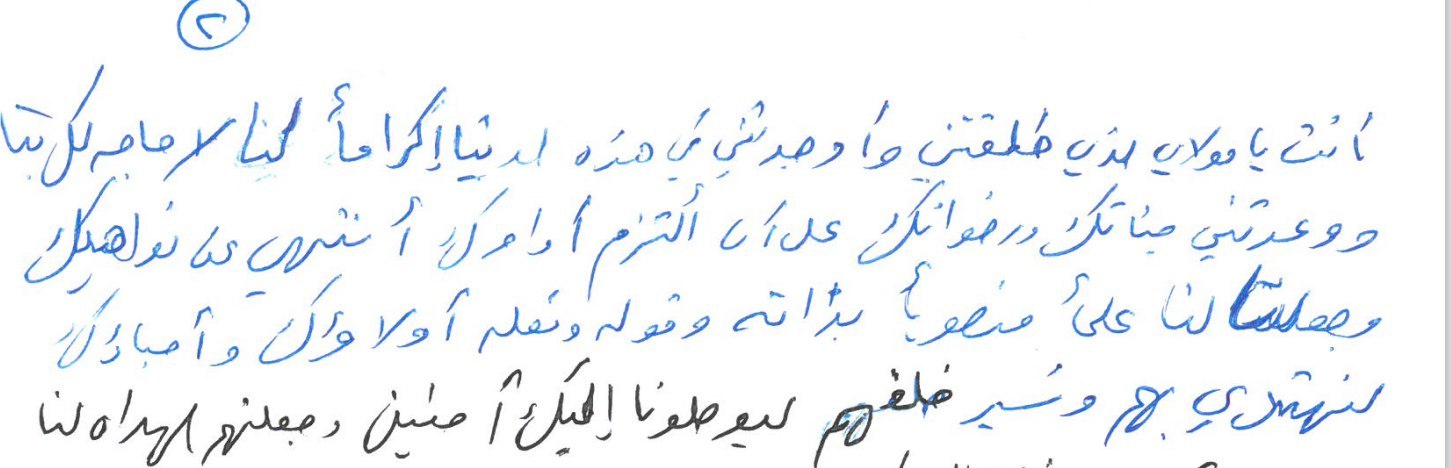 ٢
أنت يا مولاي الذي خلقتني وأوجدتني في هذه الدنيا إكراماً لنا لا حاجه لك بنا
ووعدتني جناتك ورضوانك على أن ألتزم أوامرك أنتهي عن نواهيك
وجعلت لنا علماً منصوباً بذاته وقوله وفعله أولاؤك وأحباؤك
لنهتدي بهم ونسير خلفهم ليوصلونا إليك آمنين وجعلتهم الهداه لنا